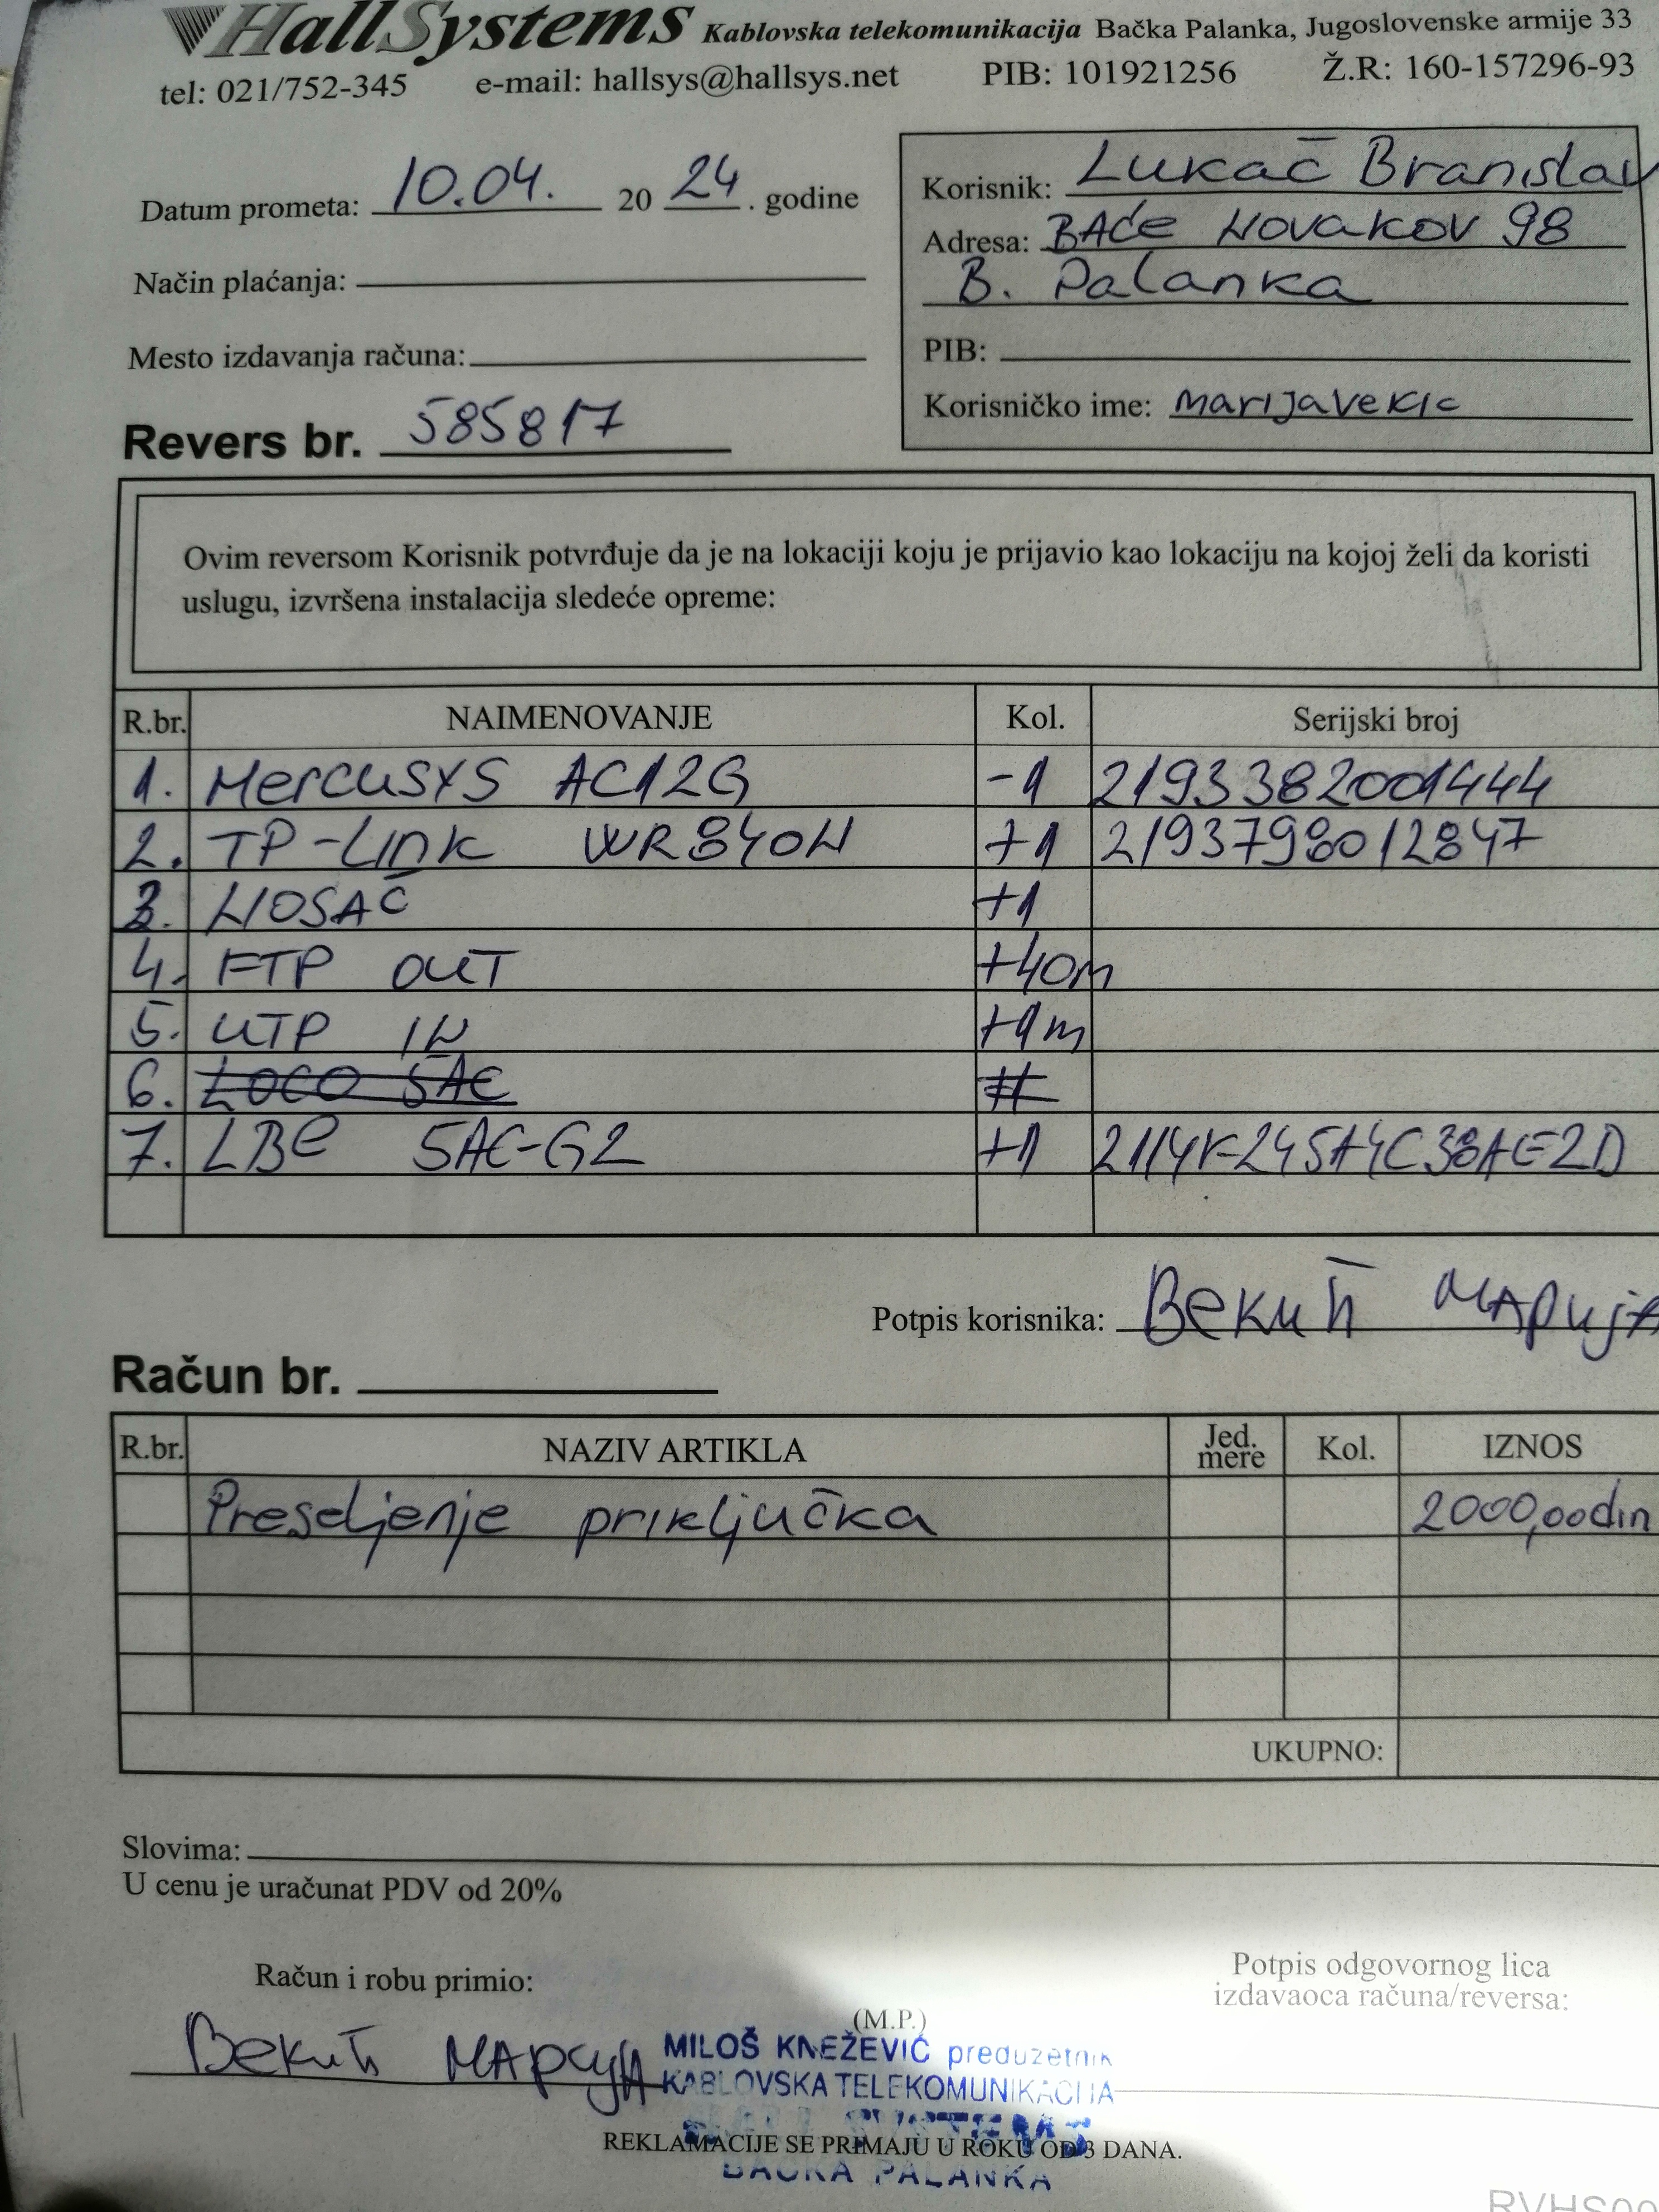 HallSystems Kablovska telekomunikacija Bačka Palanka, Jugoslovenske armije 33
tel: 021/752-345 e-mail: hallsys@hallsys.net PIB: 101921256 Ž.R: 160-157296-93
Datum prometa: 10.04. 20 24. godine
Način plaćanja:
Mesto izdavanja računa:
Revers br. 585817
Korisnik: Lukač Branislav
Adresa: BAĆe Novakov 98
B. Palanka
PIB:
Korisničko ime: marijavekic
Ovim reversom Korisnik potvrđuje da je na lokaciji koju je prijavio kao lokaciju na kojoj želi da koristi
uslugu, izvršena instalacija sledeće opreme:
R.br. NAIMENOVANJE Kol. Serijski broj
1. Mercusys AC12G -1 2193382001444
2. TP-Link WR840N +1 2193798012847
3. NOSAČ +1
4. FTP OUT +40m
5. UTP IN +1m
6. LOCO 5AC
7. LBe 5AC-G2 +1
Potpis korisnika: Векић Марија
Račun br.
R.br. NAZIV ARTIKLA Jed. mere Kol. IZNOS
Preseljenje priključka 2000,00din
UKUPNO:
Slovima:
U cenu je uračunat PDV od 20%
Račun i robu primio:
Векић Марија
(M.P.)
Potpis odgovornog lica
izdavaoca računa/reversa:
MILOŠ KNEŽEVIĆ preduzetnik
KABLOVSKA TELEKOMUNIKACIJA
REKLAMACIJE SE PRIMAJU U ROKU OD 3 DANA.
BAČKA PALANKA